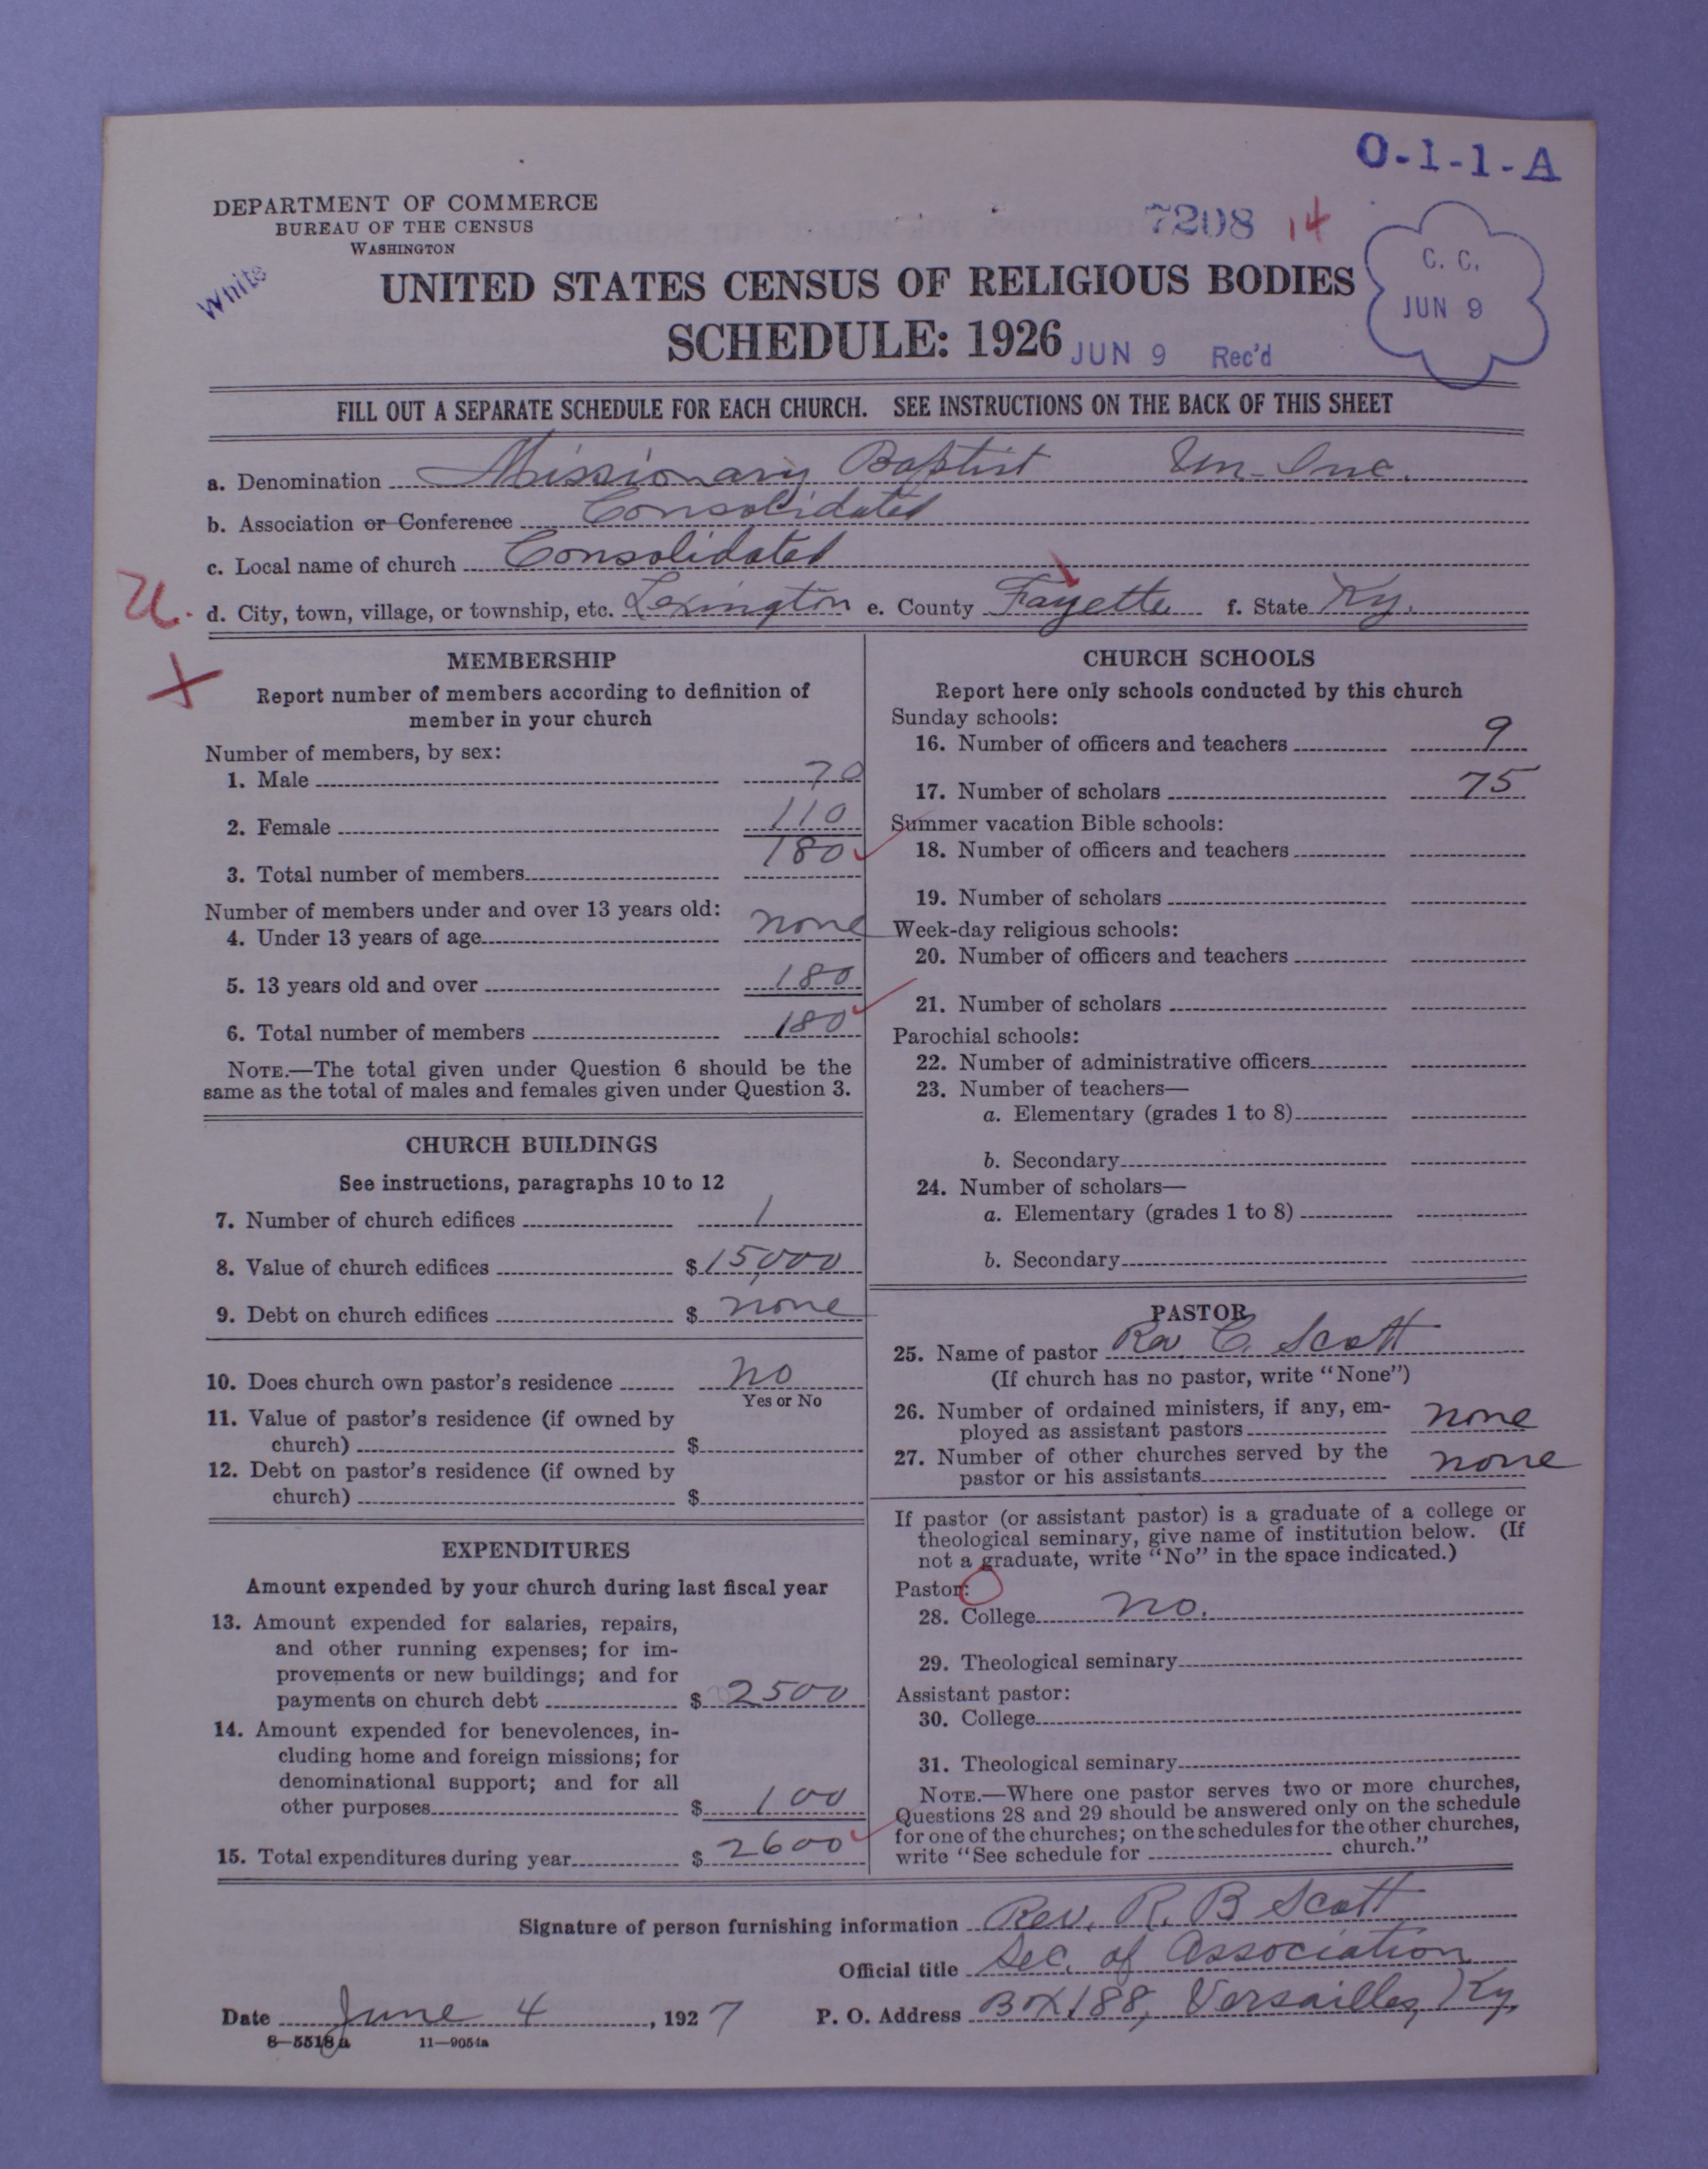 O-1-1-A
DEPARTMENT OF COMMERCE
BUREAU OF THE CENSUS
WASHINGTON
7208 14
C. C.
JUN 9
White
UNITED STATES CENSUS OF RELIGIOUS BODIES
SCHEDULE: 1926
JUN 9 Rec'd
FILL OUT A SEPARATE SCHEDULE FOR EACH CHURCH. SEE INSTRUCTIONS ON THE BACK OF THIS SHEET
a. Denomination Missionary Baptist Un-Inc.
b. Association or Conference Consolidated
c. Local name of church Consolidated
U. d. City, town, village, or township, etc. Lexington e. County Fayette f. State Ky.
MEMBERSHIP
Report number of members according to definition of
member in your church
Number of members, by sex:
1. Male 70
2. Female 110
3. Total number of members 180
Number of members under and over 13 years old:
4. Under 13 years of age none
5. 13 years old and over 180
6. Total number of members 180
NOTE.—The total given under Question 6 should be the
same as the total of males and females given under Question 3.
CHURCH BUILDINGS
See instructions, paragraphs 10 to 12
7. Number of church edifices 1
8. Value of church edifices $ 15,000
9. Debt on church edifices $ none
10. Does church own pastor's residence no
Yes or No
11. Value of pastor's residence (if owned by
church) $
12. Debt on pastor's residence (if owned by
church) $
EXPENDITURES
Amount expended by your church during last fiscal year
13. Amount expended for salaries, repairs,
and other running expenses; for im-
provements or new buildings; and for
payments on church debt $ 2500
14. Amount expended for benevolences, in-
cluding home and foreign missions; for
denominational support; and for all
other purposes $ 100
15. Total expenditures during year $ 2600
CHURCH SCHOOLS
Report here only schools conducted by this church
Sunday schools:
16. Number of officers and teachers 9
17. Number of scholars 75
Summer vacation Bible schools:
18. Number of officers and teachers
19. Number of scholars
Week-day religious schools:
20. Number of officers and teachers
21. Number of scholars
Parochial schools:
22. Number of administrative officers
23. Number of teachers—
a. Elementary (grades 1 to 8)
b. Secondary
24. Number of scholars—
a. Elementary (grades 1 to 8)
b. Secondary
PASTOR
25. Name of pastor Rev C. Scott
(If church has no pastor, write "None")
26. Number of ordained ministers, if any, em-
ployed as assistant pastors none
27. Number of other churches served by the
pastor or his assistants none
If pastor (or assistant pastor) is a graduate of a college or
theological seminary, give name of institution below. (If
not a graduate, write "No" in the space indicated.)
Pastor:
28. College no.
29. Theological seminary
Assistant pastor:
30. College
31. Theological seminary
NOTE.—Where one pastor serves two or more churches,
Questions 28 and 29 should be answered only on the schedule
for one of the churches; on the schedules for the other churches,
write "See schedule for church."
Signature of person furnishing information Rev. R. B Scott
Official title Sec. of Association
Date June 4, 1927 P. O. Address Box 188, Versailles, Ky.
8—5518a 11—9054a